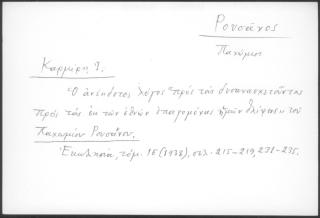 Ρουσάνος
Παχώμιος
Καρμίρη, Ι.
Ὁ ἀνέκδοτος λόγος "πρὸς τοὺς δυσανασχετοῦντας
πρὸς τὰς ἐκ τῶν ἐθνῶν ἐπαγομένας ἡμῖν θλίψεις" τοῦ
Παχωμίου Ρουσάνου.
Ἐκκλησία, τόμ. 16 (1938), σελ. 215-219, 231-235.